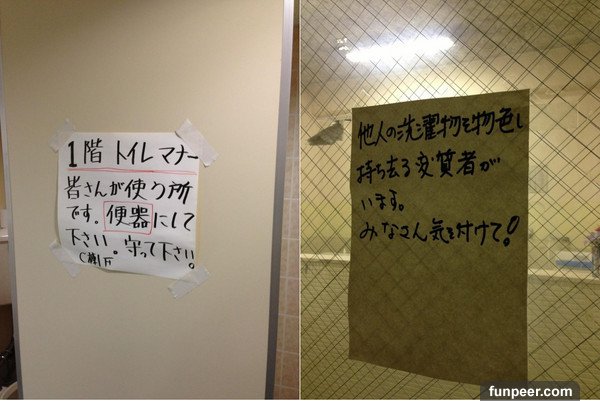 1階 トイレマナー
皆さんが使う所
です。便器にして
下さい。守って下さい!
他人の洗濯物を物色し
持ち去る変質者が
います。
みなさん気を付けて!
funpeer.com